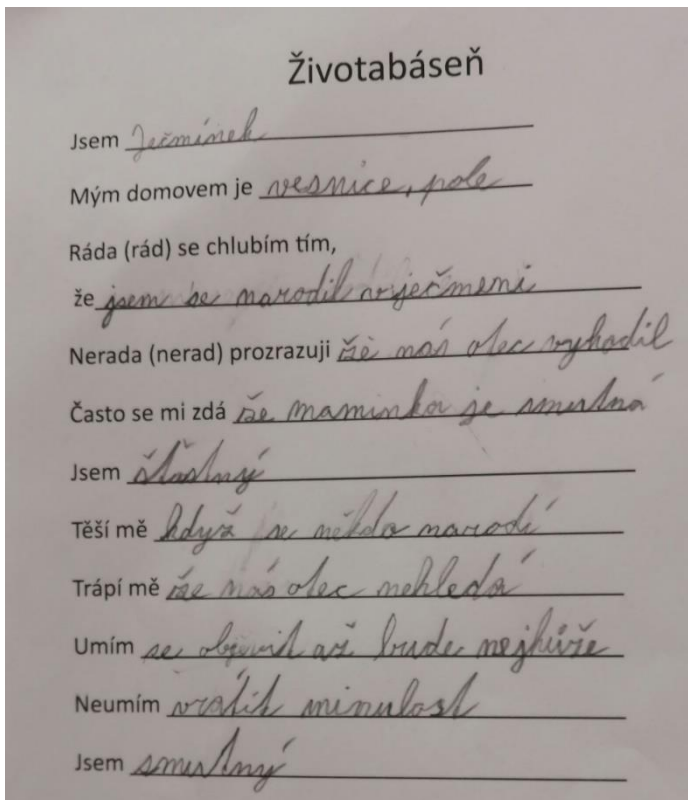 Životabáseň
Jsem Ječmínek
Mým domovem je vesnice, pole
Ráda (rád) se chlubím tím,
že jsem se narodil v ječmeni
Nerada (nerad) prozrazuji že nás otec vyhodil
Často se mi zdá že maminka je smutná
Jsem šťastný
Těší mě když se někdo narodí
Trápí mě že nás otec nehledá
Umím se objevit až bude nejhůře
Neumím vrátit minulost
Jsem smutný